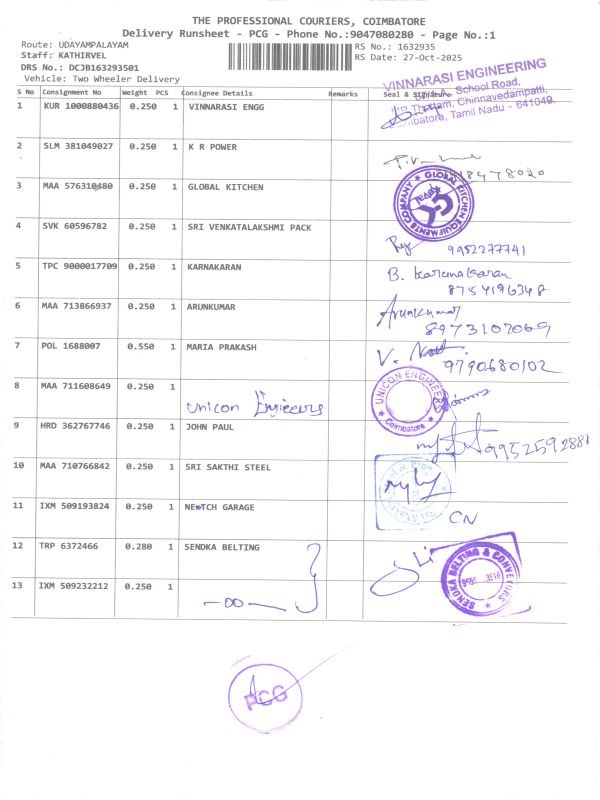 THE PROFESSIONAL COURIERS, COIMBATORE
Delivery Runsheet - PCG - Phone No.:9047080280 - Page No.:1
Route: UDAYAMPALAYAM
RS No.: 1632935
Staff: KATHIRVEL
RS Date: 27-Oct-2025
DRS No.: DCJB163293501
Vehicle: Two Wheeler Delivery
S No Consignment No Weight PCS Consignee Details Remarks Seal & Signature
VINNARASI ENGINEERING
School Road,
Chinnavedampatti,
Coimbatore, Tamil Nadu - 641049.
1 KUR 1000880436 0.250 1 VINNARASI ENGG
2 SLM 381049027 0.250 1 K R POWER
3 MAA 576310480 0.250 1 GLOBAL KITCHEN
GLOBAL KITCHEN EQUIPMENTS COMPANY
4 SVK 60596782 0.250 1 SRI VENKATALAKSHMI PACK
9952277741
5 TPC 9000017709 0.250 1 KARNAKARAN
B. Karunakaran
8754196348
6 MAA 713866937 0.250 1 ARUNKUMAR
Arunkumar
8973107069
7 POL 1688007 0.550 1 MARIA PRAKASH
9790680102
8 MAA 711608649 0.250 1
Unicon Engineers
UNICON ENGINEERS
Coimbatore
9 HRD 362767746 0.250 1 JOHN PAUL
9952592881
10 MAA 710766842 0.250 1 SRI SAKTHI STEEL
11 IXM 509193824 0.250 1 NEWTCH GARAGE
CN
12 TRP 6372466 0.280 1 SENDKA BELTING
SENDKA BELTING & CONVEYORS
13 IXM 509232212 0.250 1
—00—
PCG